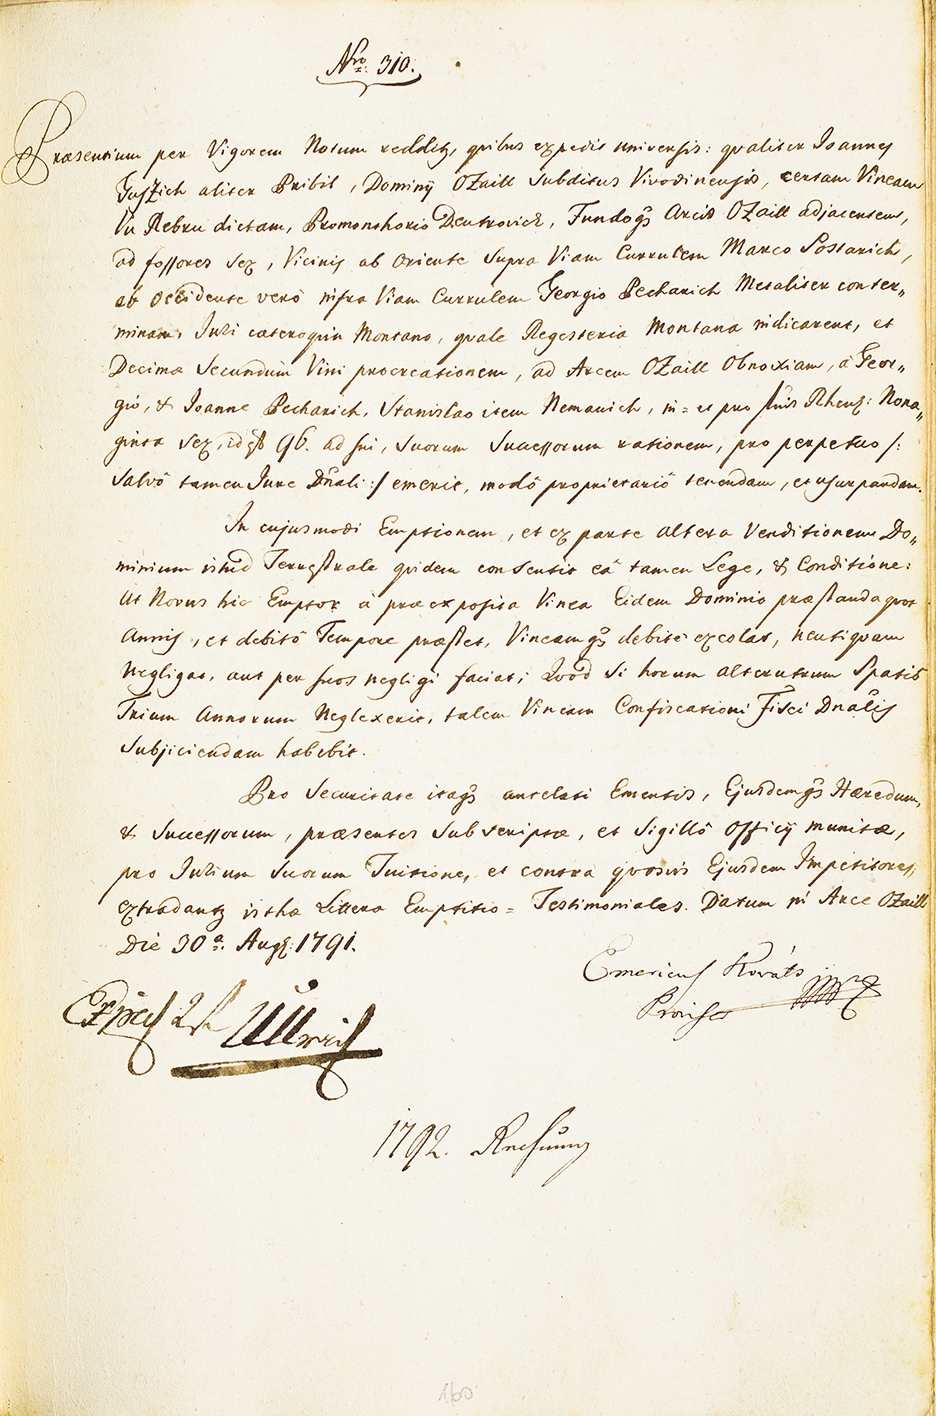 Nro. 310.
Præsentium per Vigorem Notum redditz, quibus expedit universis: qualiter Joannes
aliter Pribil, Dominÿ Ozaill Subditus Vivodinensis, certam Vineam
Vu Rebru dictam, Promonthorio Dentrovich, Fundoqz Arcis Ozaill adjacentem,
ad fossores Sex, Vicinis ab Oriente Supra Viam Currulem Marco Possarich,
ab Occidente verò infra Viam Currulem Georgio Pecharich Metaliter conter„
minam, Juri cæteroquin Montano, quale Regesteria Montana indicarent, et
Decimæ Secundùm Vini procreationem, ad Arcem Ozaill Obnoxiam, à Geor„
gio, & Joanne Pecharich, Stanislao item Nemanich, in= et pro flnis Rhens: Nona„
ginta Sex, id est 96. ad sui, Suorum Successorum rationem, pro perpetuo /:
Salvô tamen Jure Dnali :/ emerit, modô proprietariô tenendam, et usurpandam.
In cujusmodi Emptionem, et ex parte altera Venditionem Do„
minium isthud Terrestrale quidem consentit eâ tamen Lege, & Conditione:
Ut Novus hic Emptor à præexposita Vinea Eidem Dominio præstanda quot
Annis, et debitô Tempore præstet, Vineamqz debite excolat, neutiquam
Negligat, aut per suos negligi faciat; Quòd Si horum alterutrum Spatiô
Trium Annorum Neglexerit, talem Vineam Confiscationi Fisci Dnalis
Subjiciendam habebit.
Pro Securitate itaqz antelati Ementis, Ejusdemqz Hæredum,
& Successorum, præsentes Subscriptæ, et Sigillô Officÿ munitæ,
pro Jurium Suorum Tuitione, et contra quosvis Ejusdem Impetitores,
extradantz isthæ Litteræ Emptitio= Testimoniales. Datum in Arce Ozaill
Die 30a. Augs: 1791.
Emericus Kováts
Provisor
Ullrich
1792. Rechnung
160